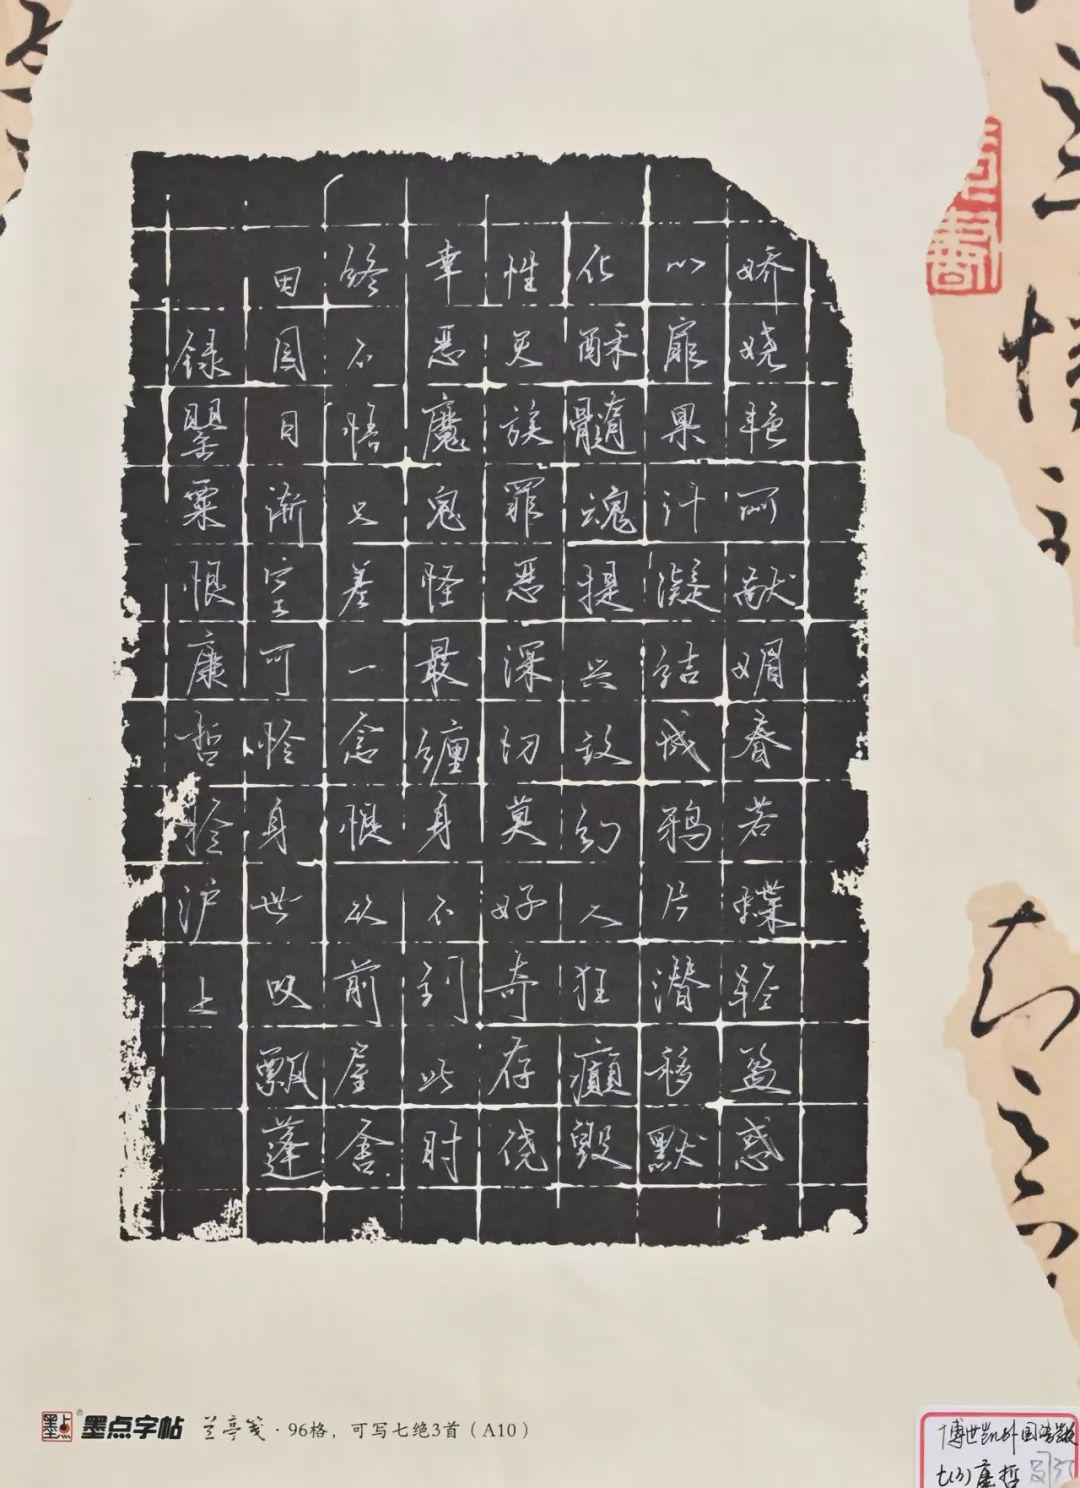 娇娆艳丽献媚眷若蝶轻盈惑
心扉果汁凝结成鸦片潜移默
化酥髓魂提兴致幻人狂癫毁
性灭族罪恶深切莫好奇存侥
幸恶魔鬼怪最缠身不到此时
终不悟只差一念恨从前屋舍
田园日渐空可怜身世叹飘蓬
录罂粟恨廉哲於沪上
墨点字帖 兰亭笺·96格，可写七绝3首（A10）
博世凯外国语
七(3) 廉哲